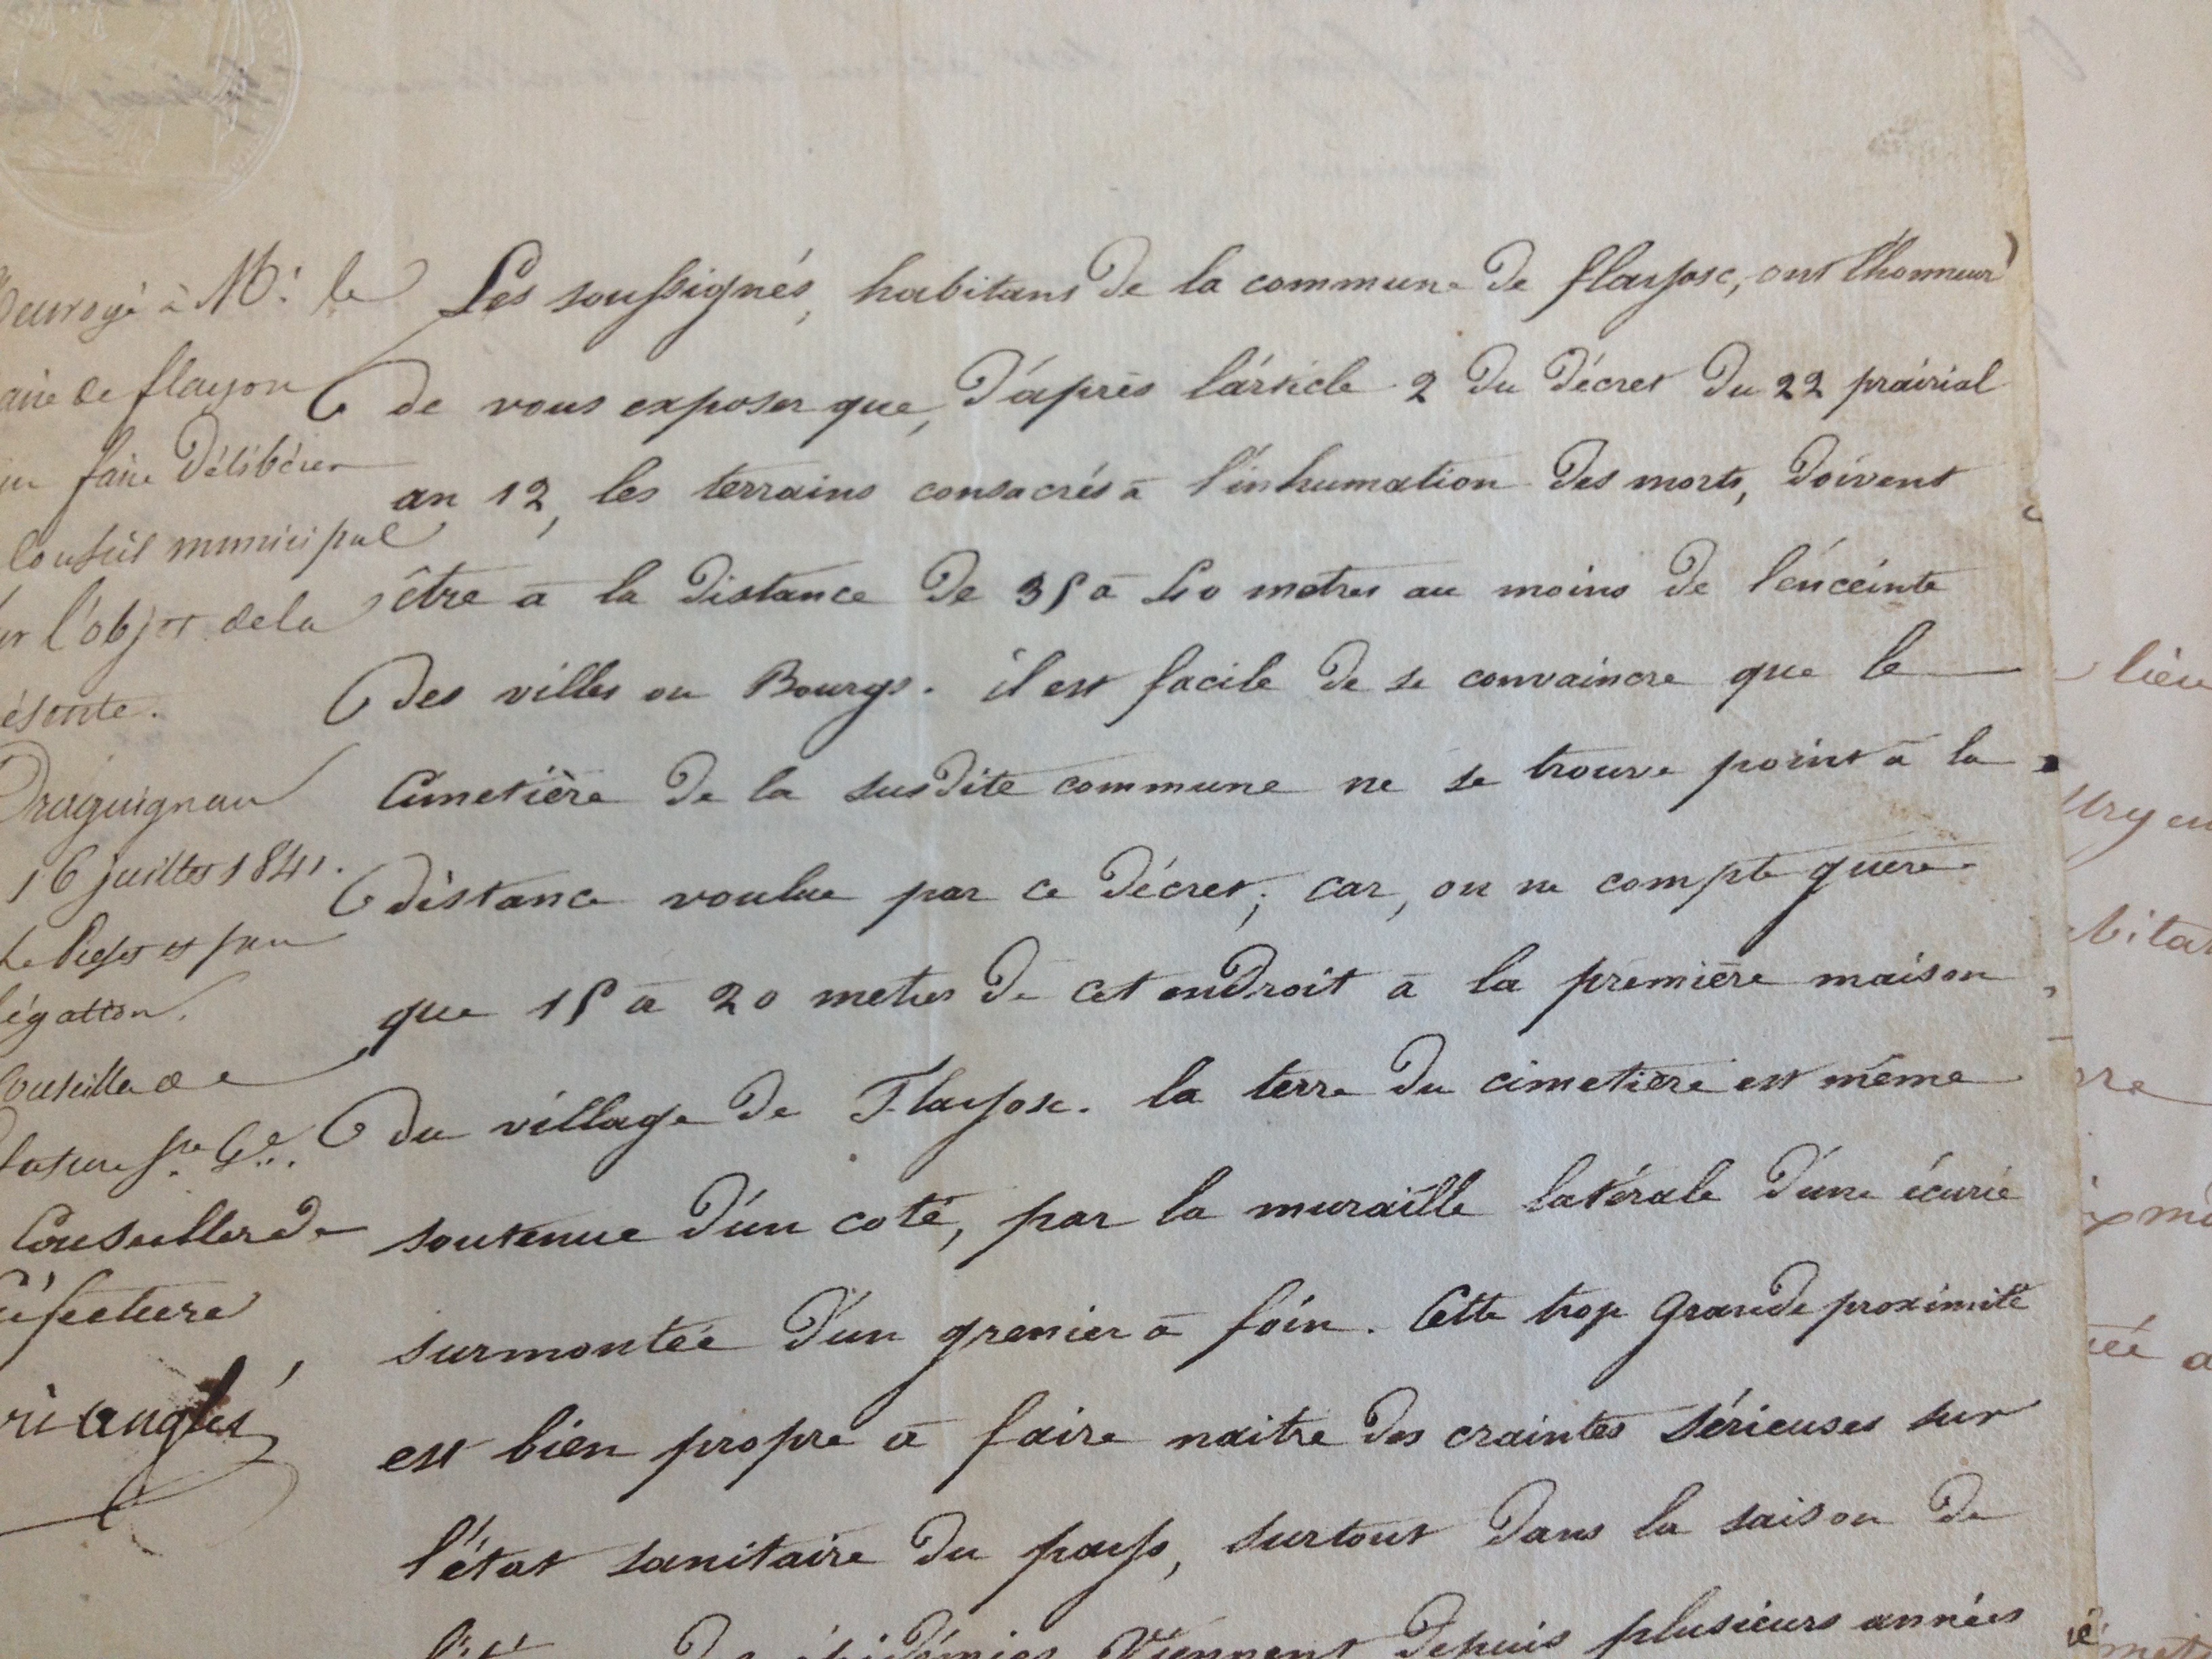 Les soussignés, habitans de la commune de flayosc, ont l'honneur
de vous exposer que, d'après l'article 2 du décret du 22 prairial
an 12, les terrains consacrés à l'inhumation des morts, doivent
être à la distance de 35 à 40 metres au moins de l'enceinte
des villes ou Bourgs. il est facile de se convaincre que le
Cimetière de la susdite commune ne se trouve point à la
distance voulue par ce décret; car, on ne compte guère
que 15 à 20 metres de cet endroit à la première maison
du village de Flayosc. la terre du cimetière est même
soutenue d'un coté, par la muraille latérale d'une écurie
surmontée d'un grenier à foin. Cette trop grande proximité
est bien propre à faire naitre des craintes sérieuses sur
l'état sanitaire du pays, surtout dans la saison de
l'été des épidémies viennent depuis plusieurs années
à Mr. le
de flayosc
faire délibérer
Conseil municipal
l'objet de la
Draguignan
16 juillet 1841.
Conseiller de
lieu